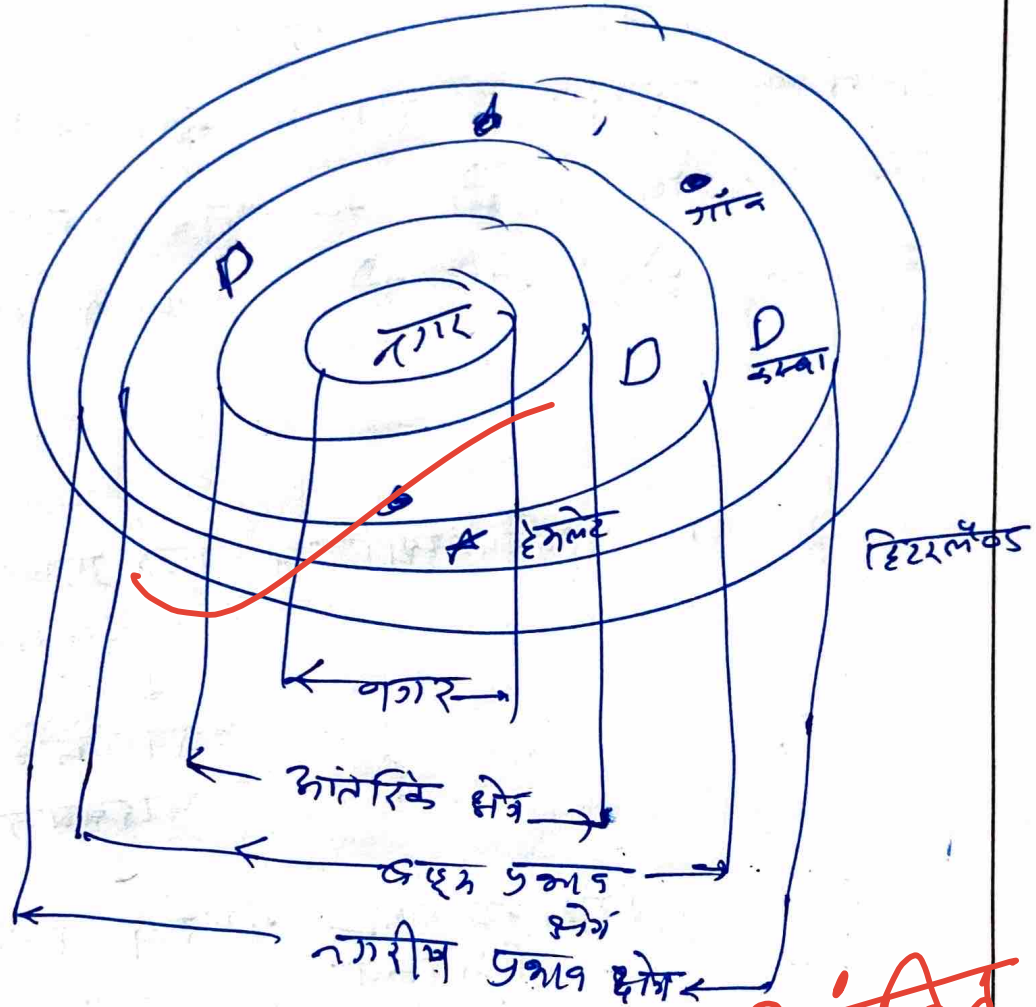 गांव
D
नगर
D
D
कस्बा
हेमलेट
हिंटरलैण्ड
नगर
आंतरिक क्षेत्र
प्रभाव
क्षेत्र
नगरीय प्रभाव क्षेत्र